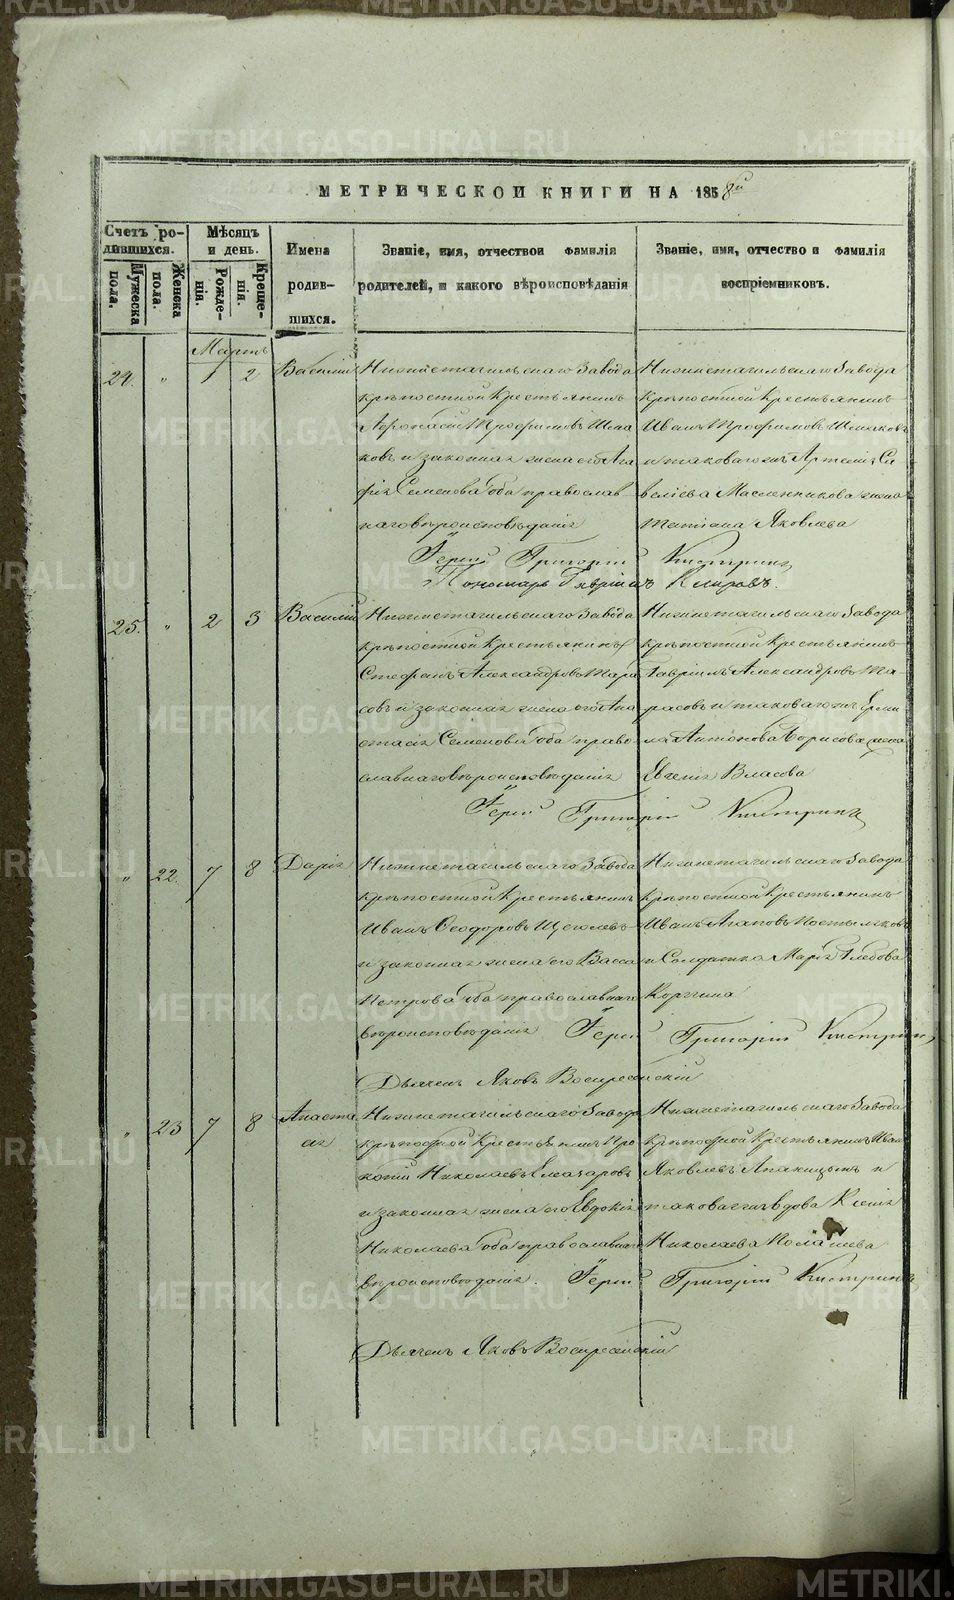 МЕТРИЧЕСКОИ КНИГИ НА 1858й
Счетъ ро-
дившихся.
Мужеска
пола.
Женска
пола.
Мѣсяцъ
и день.
Рожде-
нія.
Креще-
нія.
Имена
родив-
шихся.
Званіе, имя, отчествои фамилія
родителей, и какого вѣроисповѣданія
Званіе, имя, отчество и фамилія
воспріемниковъ.
Мартъ
24. " 1 2 Василій
Нижнетагильскаго Завода
крѣпостной Крестьянинъ
Трофимовъ
и законная жена его Ага
фія Семенова оба православ
наго вѣроисповѣданія
Нижнетагильскаго Завода
крѣпостной Крестьянинъ
Иванъ Трофимовъ
и таковагожъ Артемія Са
веліева Масленникова жена
Татіана Яковлева
Іерей Григорій
Пономарь Гавріилъ
25. " 2 3 Василій
Нижнетагильскаго Завода
крѣпостной Крестьянинъ
Стефанъ Александровъ Тара
совъ и законная жена его Ана
стасія Семенова оба право
славнаго вѣроисповѣданія
Нижнетагильскаго Завода
крѣпостной Крестьянинъ
Гавріилъ Александровъ Та-
расовъ и таковагожъ Ерми
ла Антонова Борисова жена
Евгенія Власова
Іерей Григорій
" 22. 7 8 Дарія
Нижнетагильскаго Завода
крѣпостной Крестьянинъ
Иванъ Ѳеодоровъ Щеголевъ
и законная жена его Васса
Петрова оба православнаго
вѣроисповѣданія
Нижнетагильскаго Завода
крѣпостной Крестьянинъ
Иванъ Агаповъ
и Солдатка Марія Глебова
Іерей Григорій
Дьячекъ Яковъ Воскресенскій
" 23 7 8 Анаста
сія
Нижнетагильскаго Завода
крѣпостной Крестьянинъ Про
копій Николаевъ
и законная жена его Евдокія
Николаева оба православнаго
вѣроисповѣданія.
Нижнетагильскаго Завода
крѣпостной Крестьянинъ Иванъ
Яковлевъ и
таковагожъ вдова Ксенія
Николаева
Іерей Григорій
Дьячекъ Яковъ Воскресенскій
METRIKI.GASO-URAL.RU